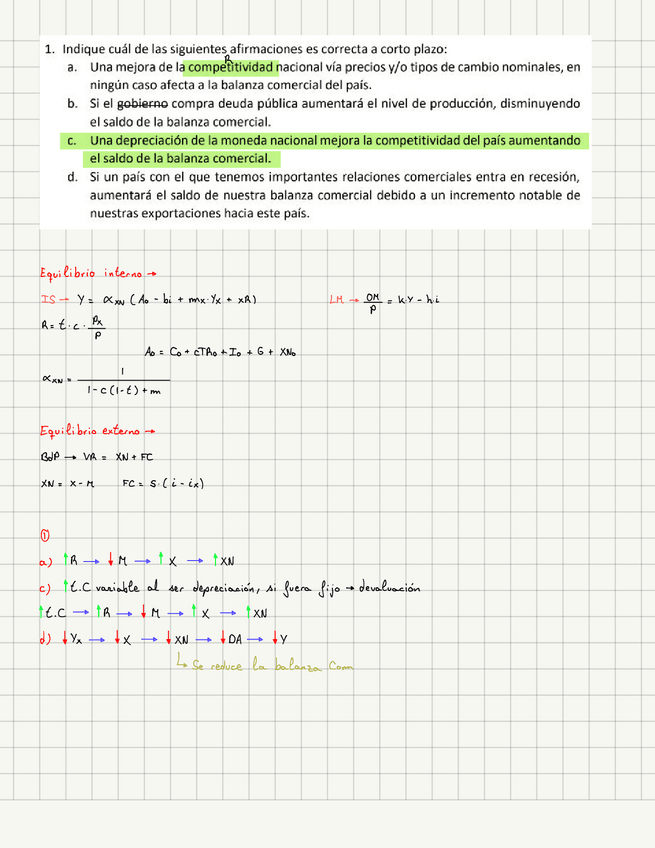 1. Indique cuál de las siguientes afirmaciones es correcta a corto plazo:
R
a. Una mejora de la competitividad nacional vía precios y/o tipos de cambio nominales, en
ningún caso afecta a la balanza comercial del país.
b. Si el gobierno compra deuda pública aumentará el nivel de producción, disminuyendo
el saldo de la balanza comercial.
c. Una depreciación de la moneda nacional mejora la competitividad del país aumentando
el saldo de la balanza comercial.
d. Si un país con el que tenemos importantes relaciones comerciales entra en recesión,
aumentará el saldo de nuestra balanza comercial debido a un incremento notable de
nuestras exportaciones hacia este país.
Equilibrio interno →
IS → Y = α_XN (A₀ - bi + mx·Yx + xR)    LM → OM/P = k·Y - h·i
R = t·c · Px/P
A₀ = C₀ + cTR₀ + I₀ + G + XN₀
α_XN = 1 / (1 - c(1-t) + m)
Equilibrio externo →
BdP → VR = XN + FC
XN = X - M    FC = S·(i - ix)
①
a) ↑R → ↓M → ↑X → ↑XN
c) ↑t.C variable al ser depreciación, si fuera fijo → devaluación
↑t.C → ↑R → ↓M → ↑X → ↑XN
d) ↓Yx → ↓X → ↓XN → ↓DA → ↓Y
↳ Se reduce la balanza Com